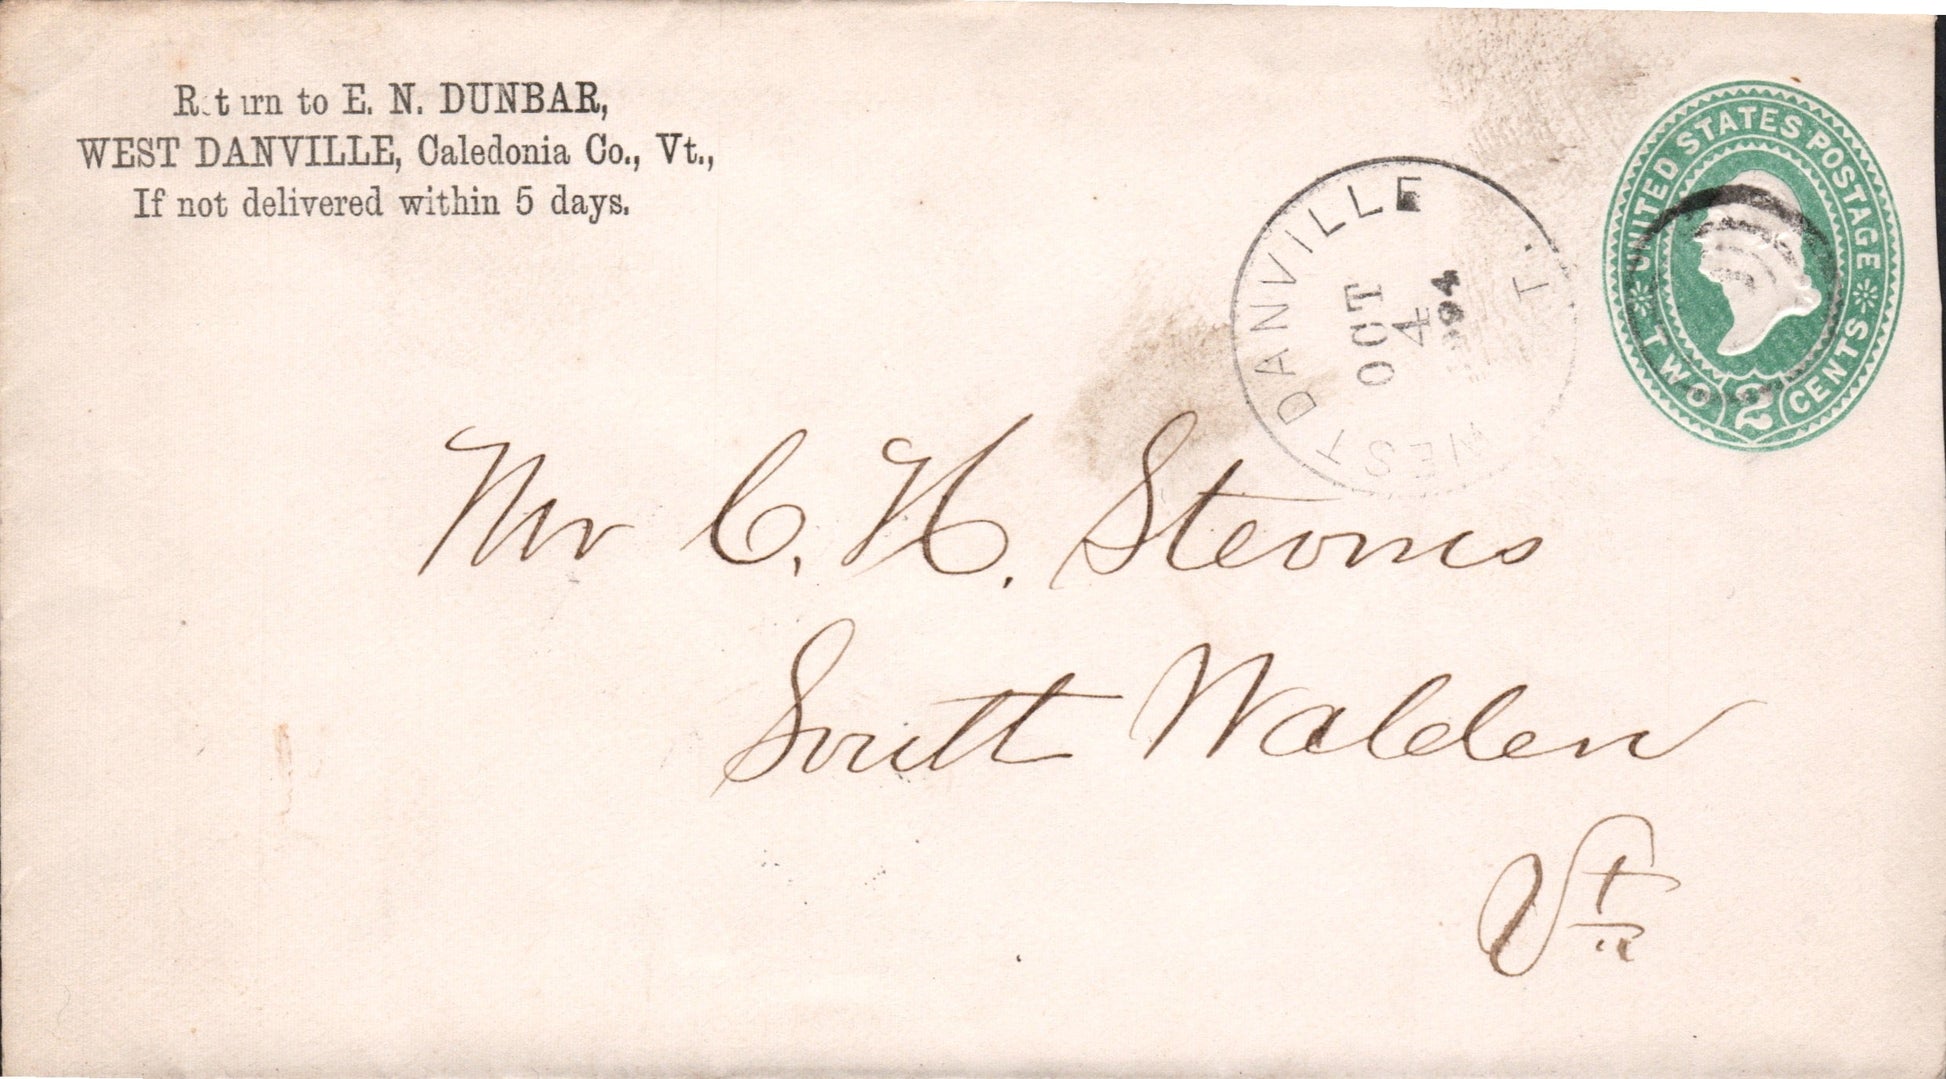 Return to E. N. DUNBAR,
WEST DANVILLE, Caledonia Co., Vt.,
If not delivered within 5 days.
WEST DANVILLE VT.
OCT
4
94
UNITED STATES POSTAGE
TWO 2 CENTS
Mr C. H. Stevens
South Walden
Vt